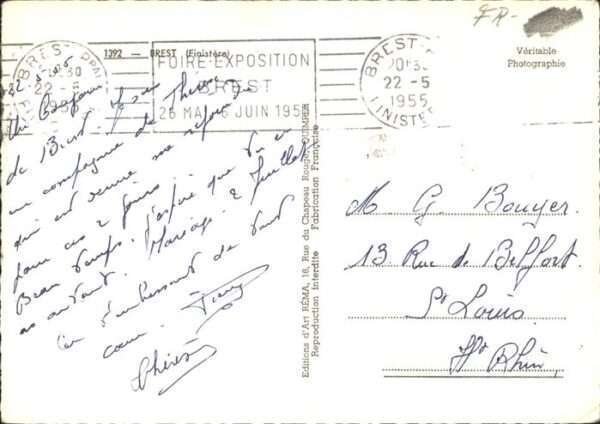 FR-
1392 — BREST (Finistère)
BREST
22-5
1955
FOIRE EXPOSITION
BREST
26 MAI 6 JUIN 1955
BREST
22-5
1955
FINISTÈRE
Véritable
Photographie
de Brest
en compagnie de Thérèse
qui est venue me rejoindre
pour ces 2 jours.
Beau temps. J'espère que tu en
as autant. Mariage 2 Juillet
En t'embrassant de tout
coeur.
Thérèse
Editions d'Art RÉMA, 16, Rue du Chapeau Rouge, QUIMPER
Reproduction interdite Fabrication Française
M. G. Bouyer
13 Rue de Belfort
St Louis
Ht Rhin